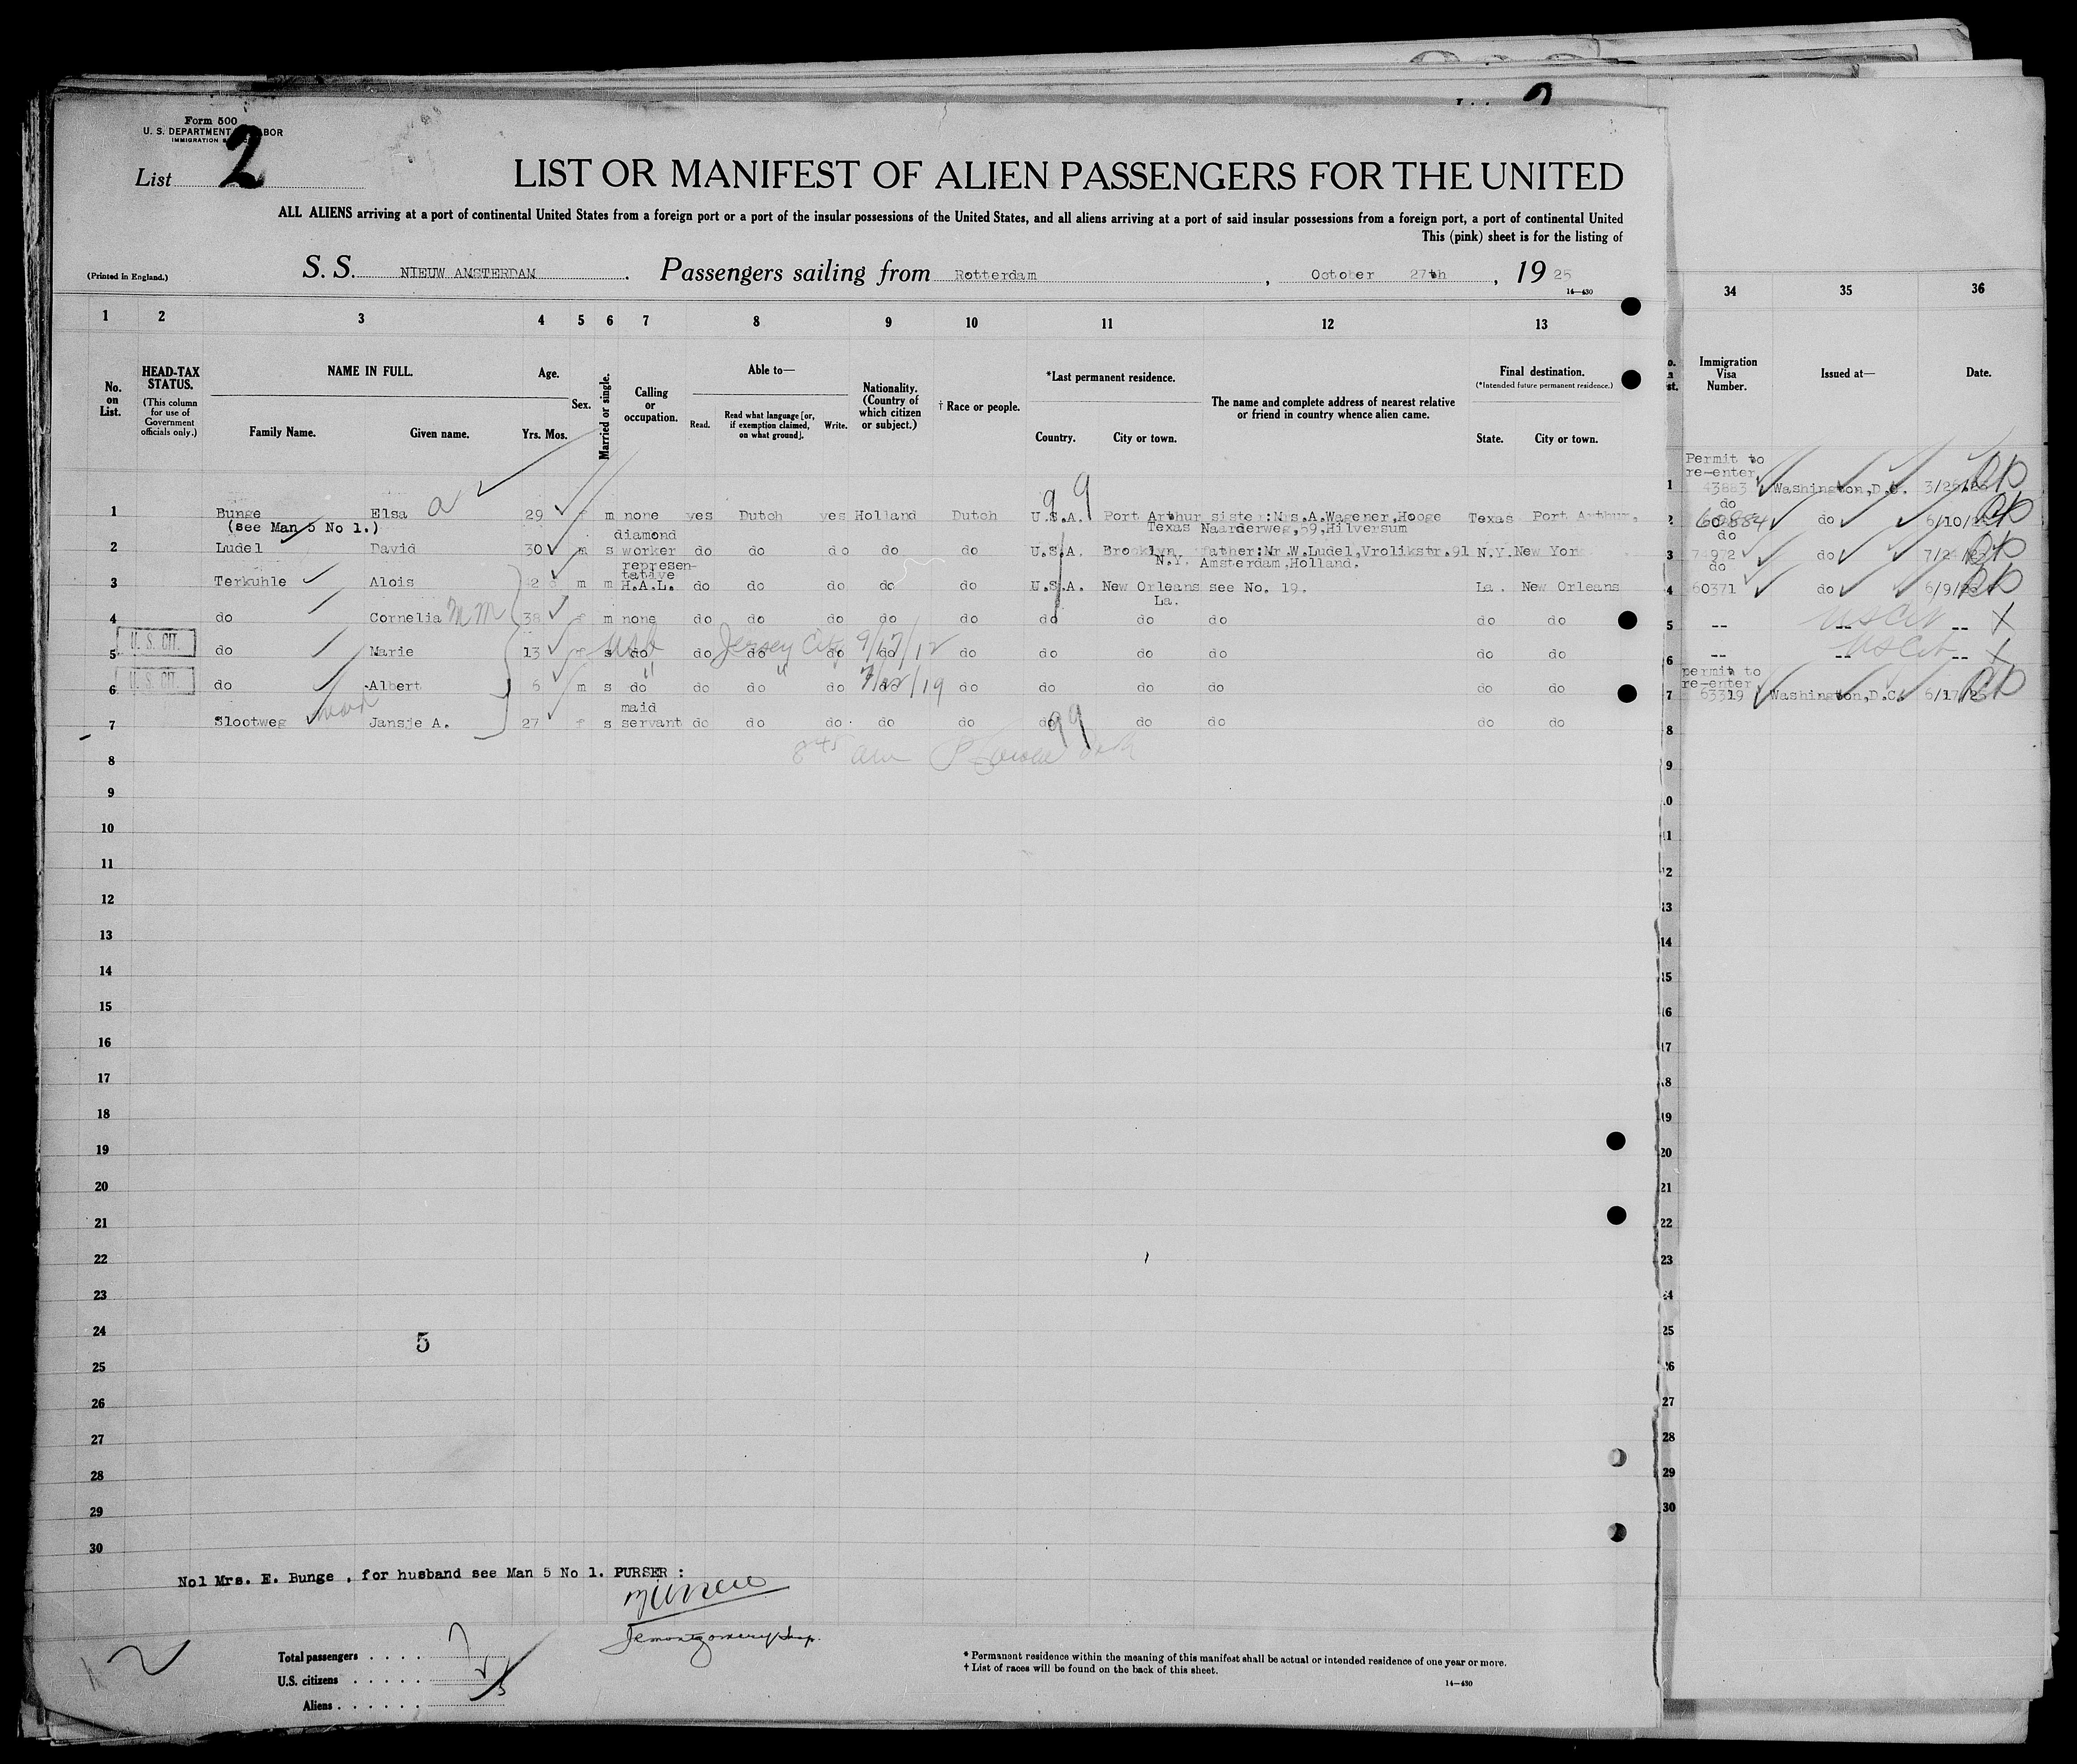 Form 500
U. S. DEPARTMENT BOR
IMMIGRATION
List 2
LIST OR MANIFEST OF ALIEN PASSENGERS FOR THE UNITED
ALL ALIENS arriving at a port of continental United States from a foreign port or a port of the insular possessions of the United States, and all aliens arriving at a port of said insular possessions from a foreign port, a port of continental United
This (pink) sheet is for the listing of
(Printed in England.)
S. S. NIEUW AMSTERDAM. Passengers sailing from Rotterdam, October 27th, 19 25
14—430
1 2 3 4 5 6 7 8 9 10 11 12 13 34 35 36
No. on List.
HEAD-TAX STATUS.
(This column for use of Government officials only.)
NAME IN FULL.
Family Name. Given name.
Age.
Yrs. Mos.
Sex.
Married or single.
Calling or occupation.
Able to—
Read. Read what language [or, if exemption claimed, on what ground]. Write.
Nationality. (Country of which citizen or subject.)
† Race or people.
*Last permanent residence.
Country. City or town.
The name and complete address of nearest relative or friend in country whence alien came.
Final destination.
(*Intended future permanent residence.)
State. City or town.
Immigration Visa Number.
Issued at—
Date.
a
99
Permit to
re-enter
1 Bunge Elsa 29 f m none yes Dutch yes Holland Dutch U.S.A. Port Arthur sister:Mrs.A.Wagener,Hooge Texas Port Arthur,
(see Man 5 No 1.) Texas Naarderweg,59,Hilversum
1 43883 Washington,D.C.
diamond
2 Ludel David 30 m s worker do do do do do U.S.A. Brooklyn father:Mr.W.Ludel,Vrolikstr.91 N.Y. New York
N.Y. Amsterdam,Holland.
do
2 60884 do 6/10/25
represen-
tative
3 Terkuhle Alois 42 m m H.A.L. do do do do do U.S.A. New Orleans see No. 19. La. New Orleans
La.
do
3 74972 do 7/24/25
do
4 do Cornelia 38 f m none do do do do do do do do do do
4 60371 do 6/9/25
U. S. CIT.
5 do Marie 13 f s do do do do do do do do do do do
Jersey City 9/17/12
5 -- -- -- X
US Cit
U. S. CIT.
6 do Albert 6 m s do do do do do do do do do do do
6 -- -- -- X
US Cit
maid
7 Slootweg Jansje A. 27 f s servant do do do do do do do do do do
99
permit to
re-enter
7 63319 Washington,D.C. 6/17/25
8 845 am
8
9
9
10
11
12
13
14
15
16
17
18
19
20
21
22
23
24
25
26
27
28
29
30
5
No1 Mrs. E. Bunge , for husband see Man 5 No 1. PURSER :
JEMontgomery Insp.
Total passengers . . . . 7
U.S. citizens . . . . . 2
Aliens . . . . . . 5
* Permanent residence within the meaning of this manifest shall be actual or intended residence of one year or more.
† List of races will be found on the back of this sheet.
14—430